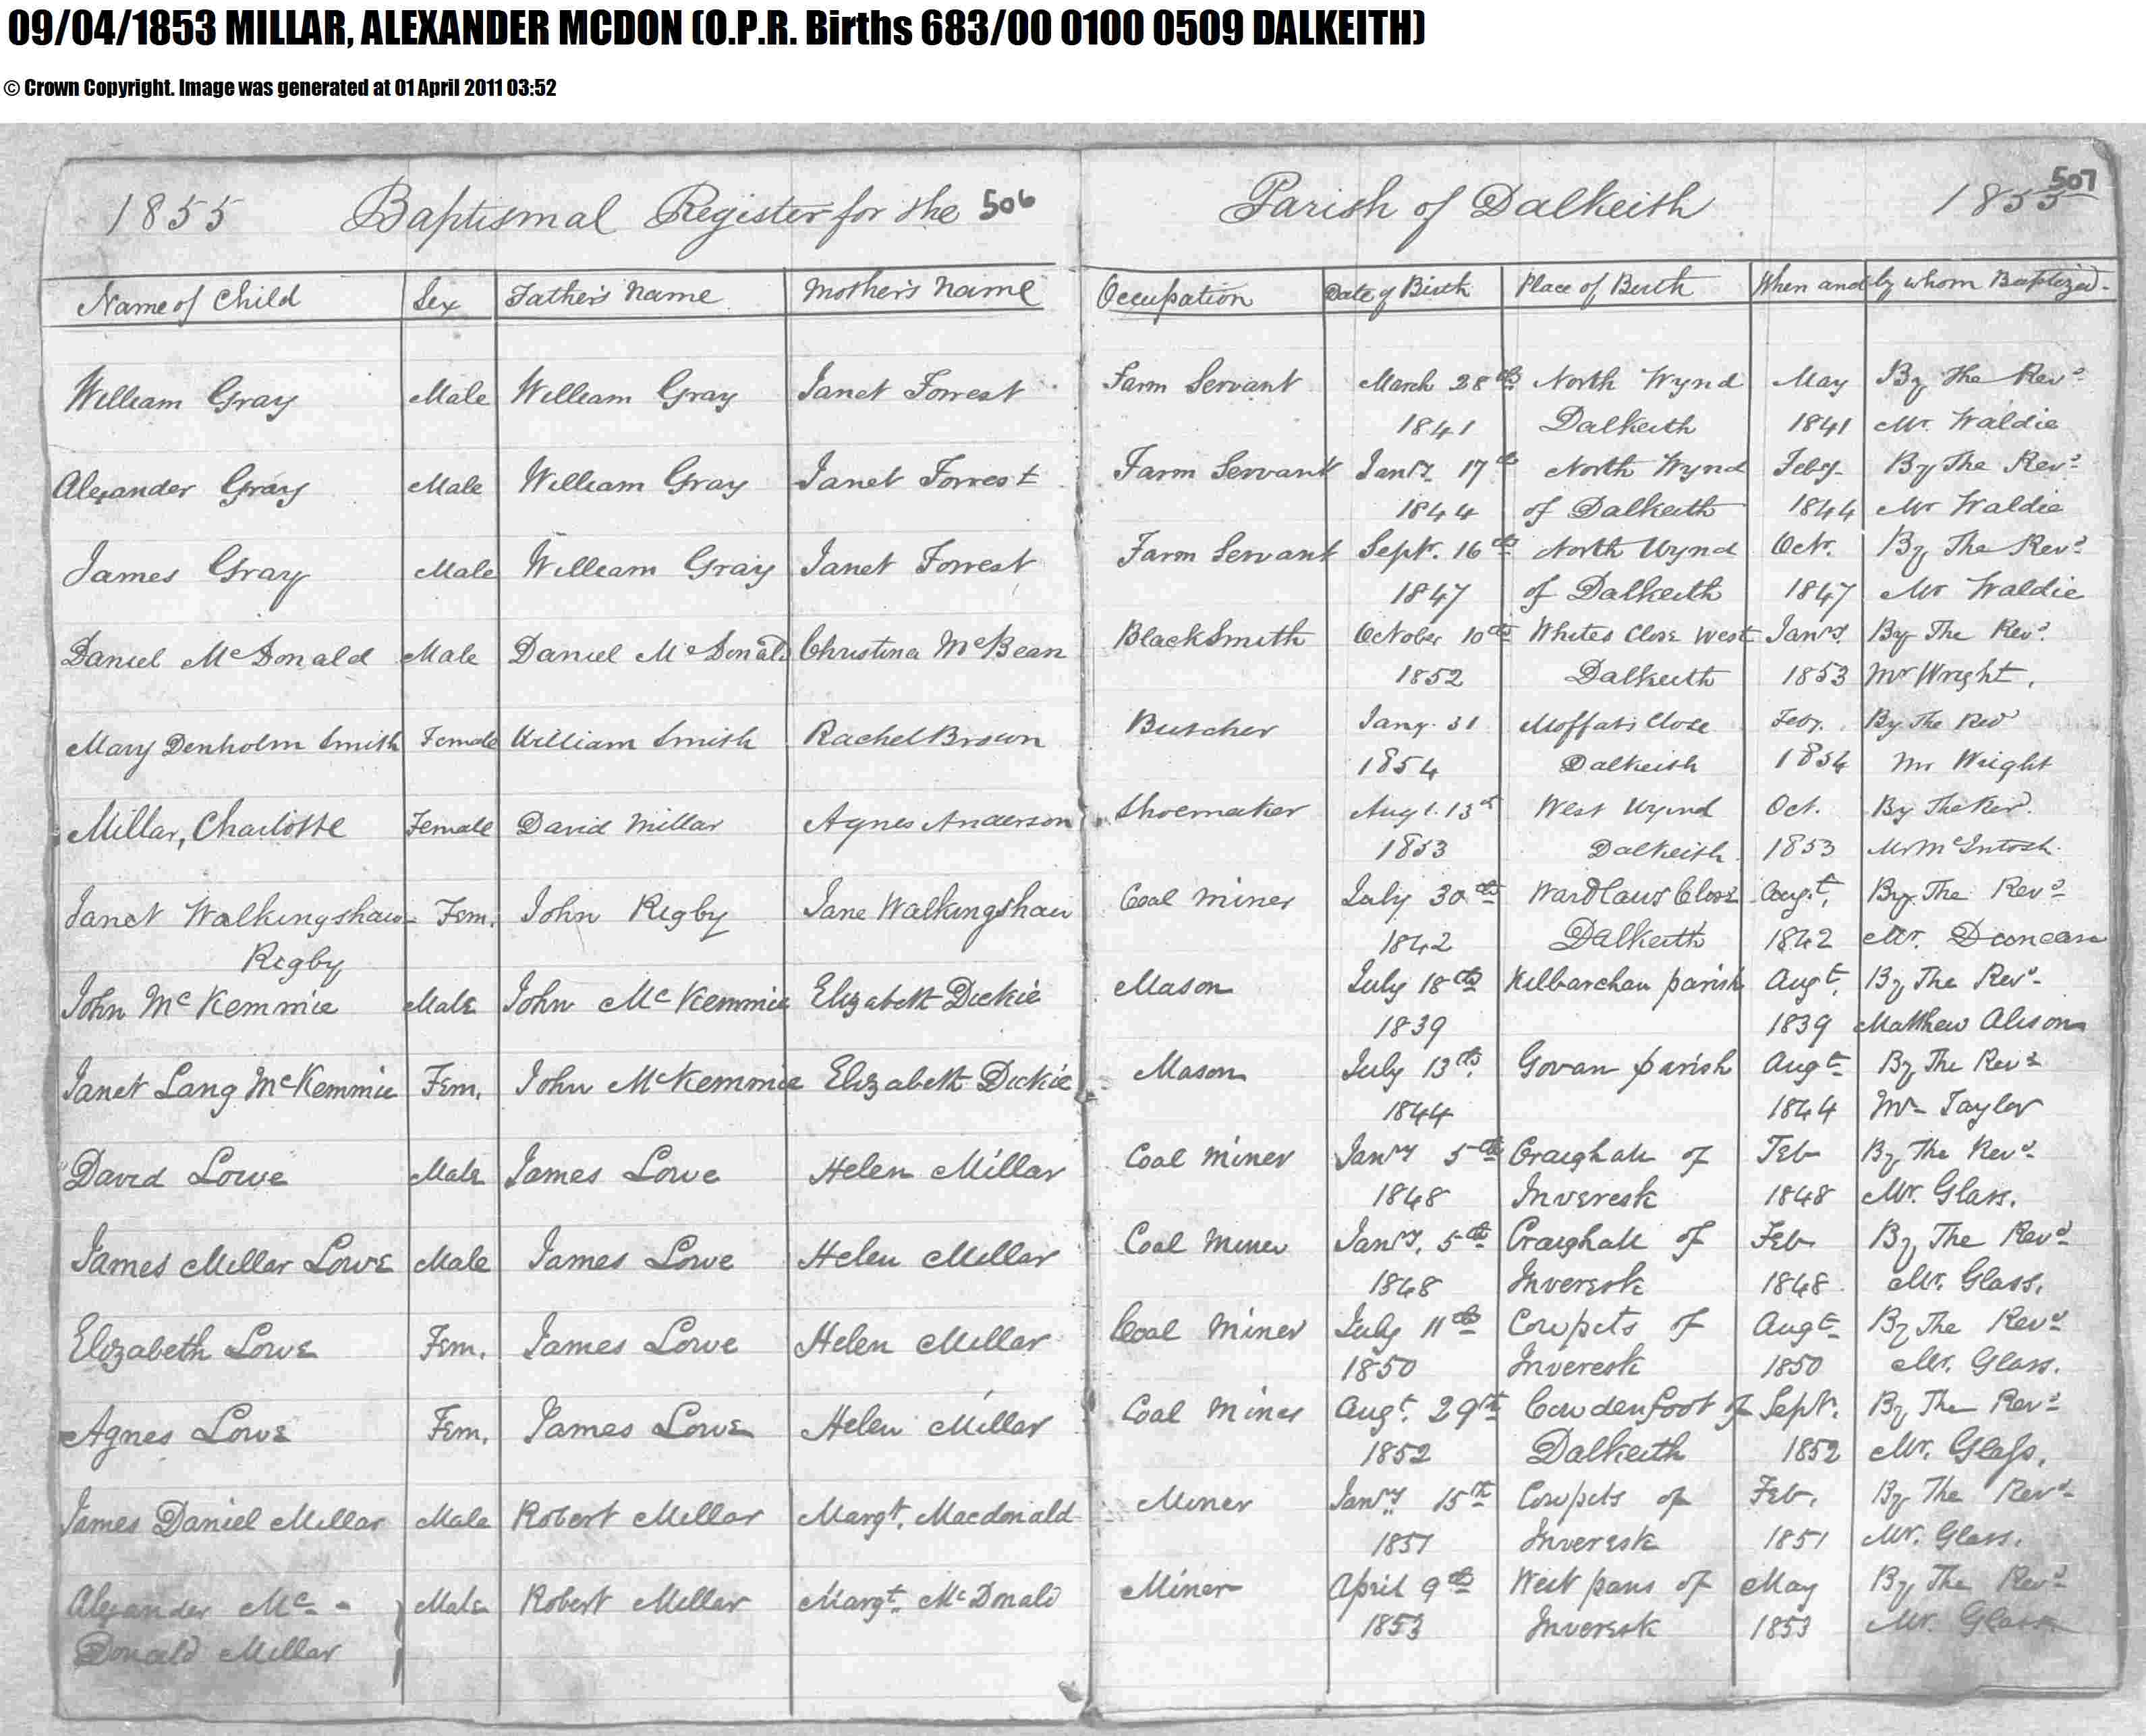 09/04/1853 MILLAR, ALEXANDER MCDON (O.P.R. Births 683/00 0100 0509 DALKEITH)
© Crown Copyright. Image was generated at 01 April 2011 03:52
1855 Baptismal Register for the 506 Parish of Dalkeith 1855 507
Name of Child Sex Father's Name Mother's Name Occupation Date of Birth Place of Birth When and by whom Baptized.
William Gray Male William Gray Janet Forrest Farm Servant March 28th North Wynd May By The Revd
1841 Dalkeith 1841 Mr. Waldie
Alexander Gray Male William Gray Janet Forrest Farm Servant Jany. 17th North Wynd Feby. By The Revd
1844 of Dalkeith 1844 Mr Waldie
James Gray Male William Gray Janet Forrest Farm Servant Sept. 16th North Wynd Octr. By The Revd
1847 of Dalkeith 1847 Mr Waldie
Daniel McDonald Male Daniel McDonald Christina McBean BlackSmith October 10th Whites Close West Jany. By The Revd.
1852 Dalkeith 1853 Mr Wright.
Mary Denholm Smith Female William Smith Rachel Brown Butcher Jany. 31 Moffats Close Feby. By The Revd
1854 Dalkeith 1854 Mr Wright
Millar, Charlotte Female David Millar Agnes Anderson Shoemaker Augt. 13th West Wynd Oct. By The Revd.
1853 Dalkeith. 1853 Mr McIntosh.
Janet Walkingshaw Fem. John Rigby Jane Walkingshaw Coal Miner July 30th Wardlaws Close Augt. By The Revd
Rigby 1842 Dalkeith 1842 Mr. Duncan
John McKemmie Male John McKemmie Elizabeth Dickie Mason July 18th Kilbarchan parish Augt. By The Revd
1839 1839 Matthew Alison
Janet Lang McKemmie Fem. John McKemmie Elizabeth Dickie Mason July 13th. Govan parish Augt By The Revd
1844 1844 Mr Taylor
David Lowe Male James Lowe Helen Millar Coal Miner Jany 5th Craighall of Feb By The Revd
1848 Inveresk 1848 Mr. Glass.
James Millar Lowe Male James Lowe Helen Millar Coal Miner Jany. 5th Craighall of Feb By The Revd
1848 Inveresk 1848. Mr. Glass.
Elizabeth Lowe Fem. James Lowe Helen Millar Coal Miner July 11th Cowpits of Augt By The Revd
1850 Inveresk 1850 Mr. Glass.
Agnes Lowe Fem. James Lowe Helen Millar Coal Miner Augt. 29th Cowdenfoot of Sept. By The Revd
1852 Dalkeith 1852 Mr. Glass.
James Daniel Millar Male Robert Millar Margt. Macdonald Miner Jany 15th Cowpits of Feb. By The Revd
1851 Inveresk 1851 Mr. Glass.
Alexander Mc- Male Robert Millar Margt. McDonald Miner April 9th West pans of May By The Revd
Donald Millar 1853 Inveresk 1853 Mr. Glass